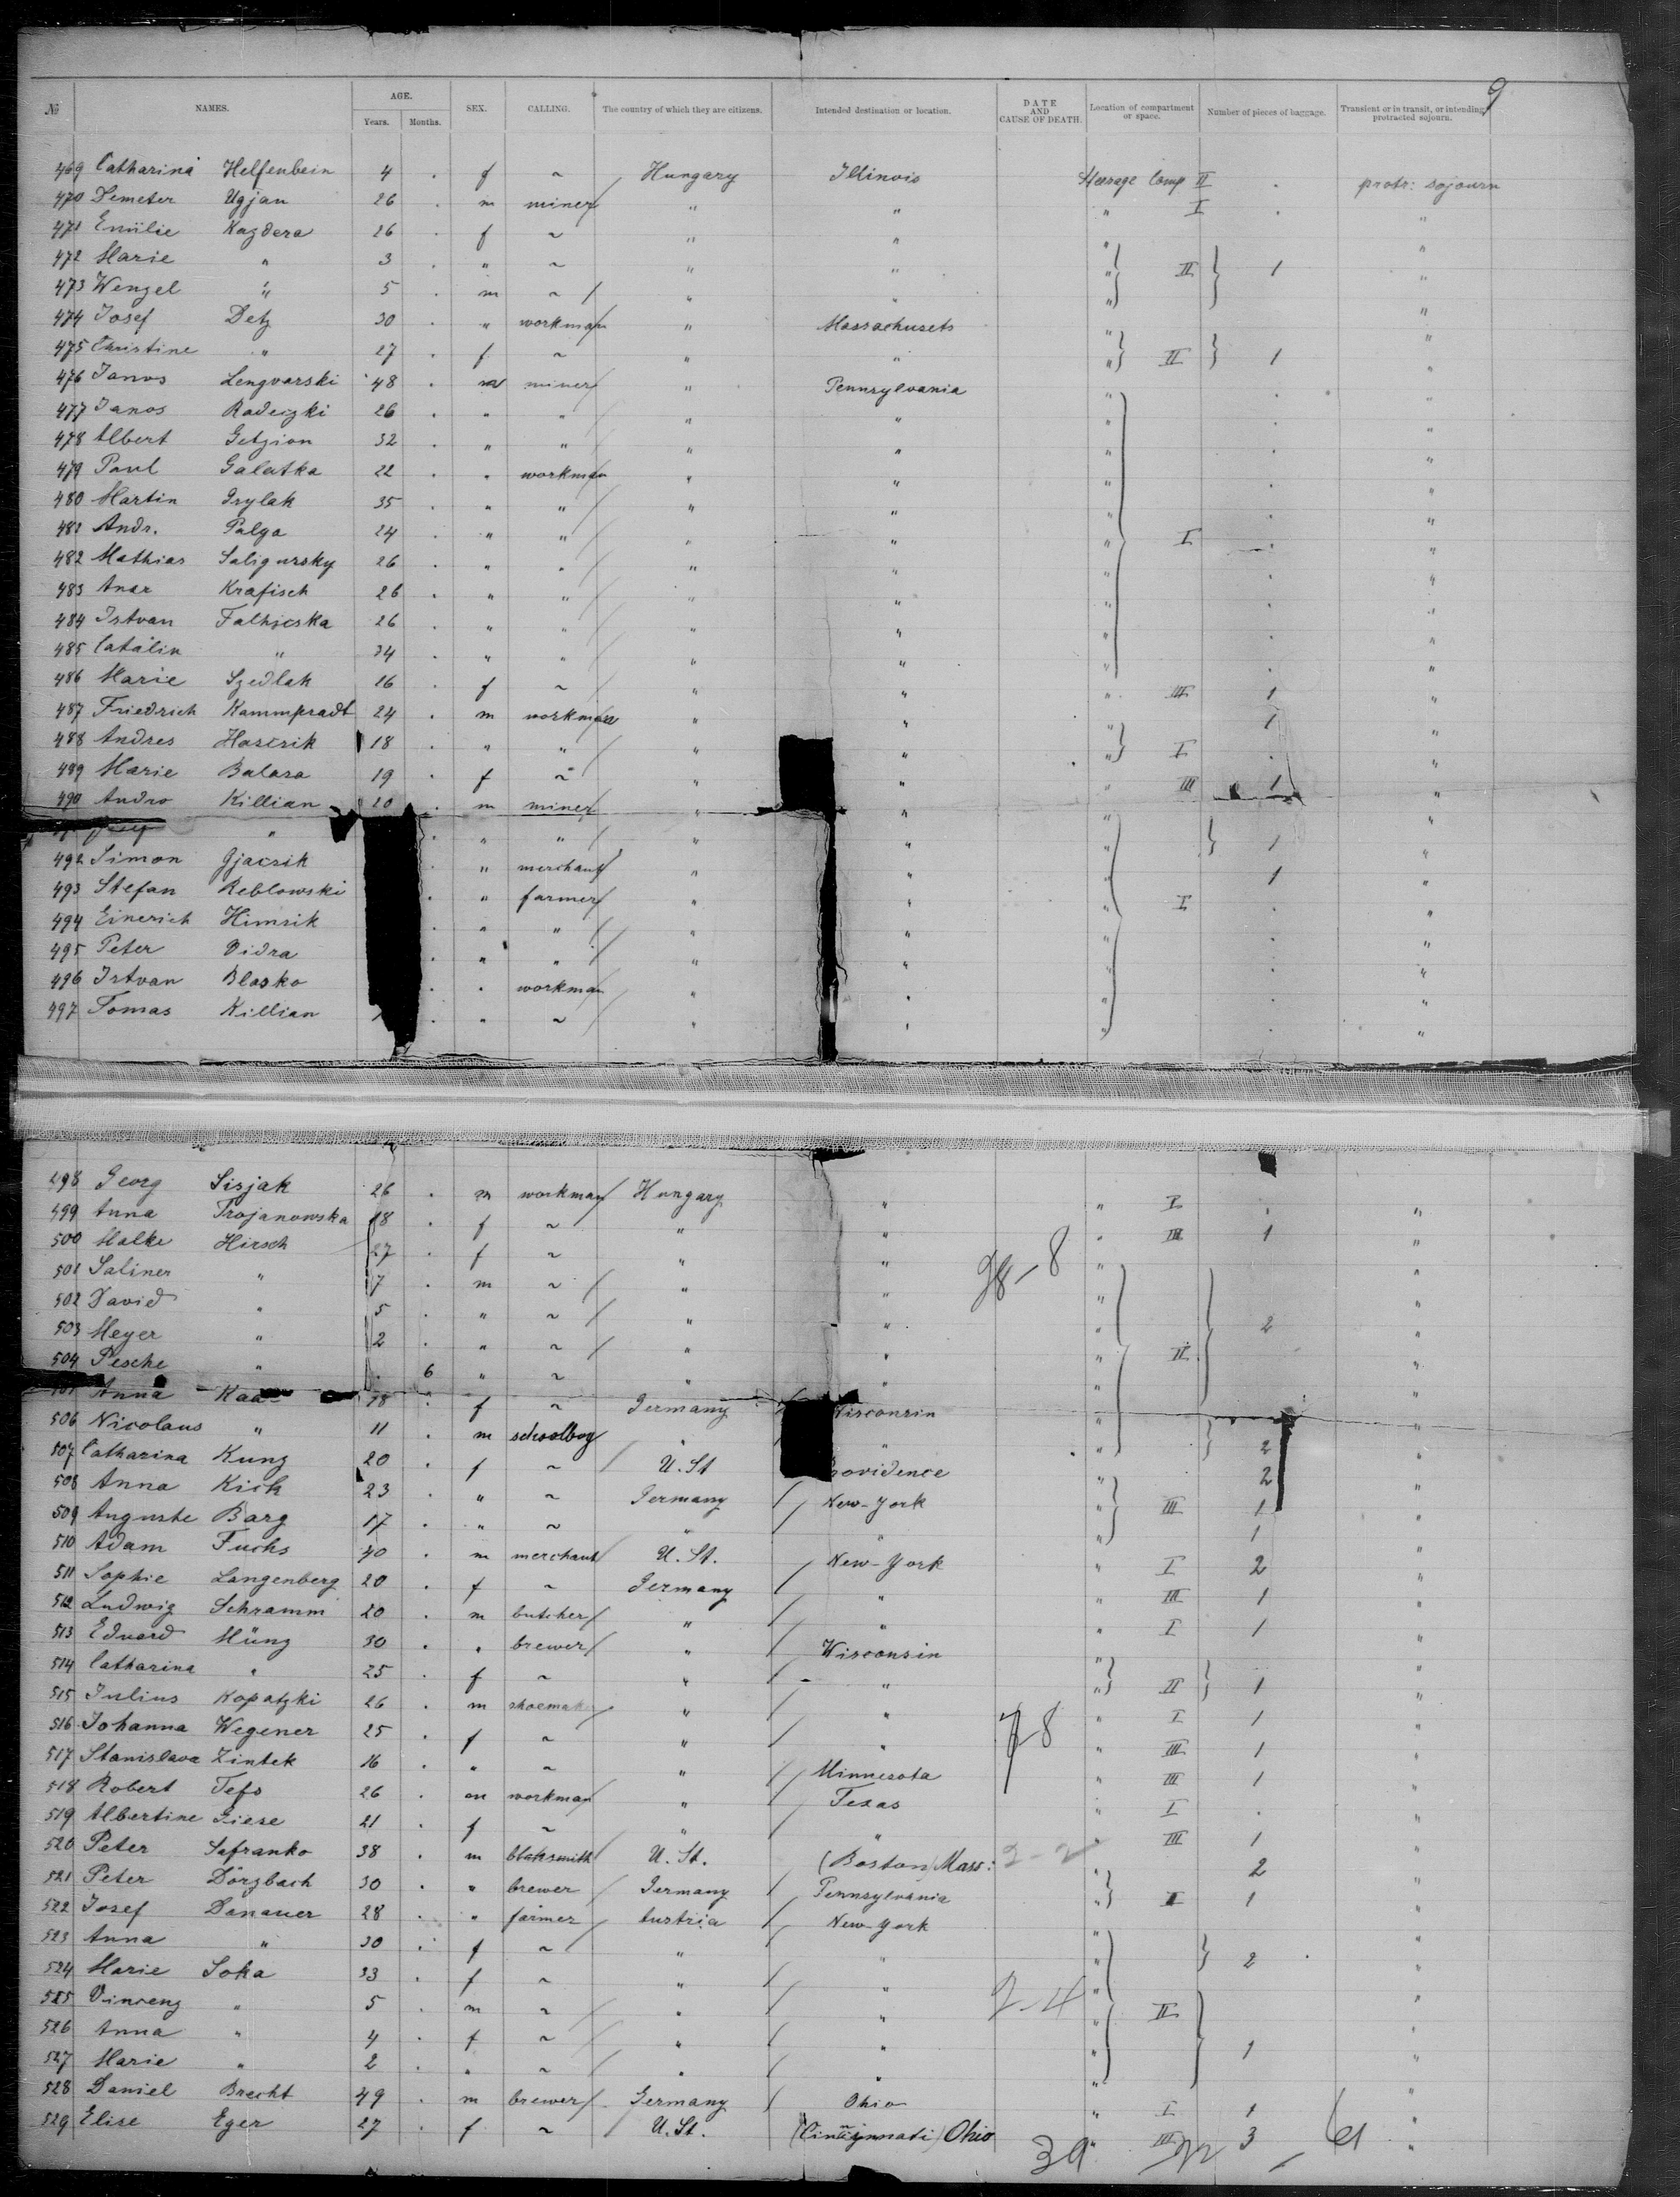 9
№ NAMES. AGE. Years. Months. SEX. CALLING. The country of which they are citizens. Intended destination or location. DATE AND CAUSE OF DEATH. Location of compartment or space. Number of pieces of baggage. Transient or in transit, or intending protracted sojourn.
469 Catharina Helfenbein 4 . f ~ Hungary Illinois Steerage Comp II . protr: sojourn
470 Demeter Ugjan 26 . m miner " " " I . "
471 Emilie Kazdera 26 . f ~ " " " "
472 Marie " 3 . " ~ " " " II 1 "
473 Wenzel " 5 . m ~ " " " "
474 Josef Detz 30 . " workman " Massachusets " "
475 Christine " 27 . f ~ " " " II 1 "
476 Janos Lengvarski 48 . m miner " Pennsylvania " . "
477 Janos Radeczki 26 . " " " " " . "
478 Albert Getzion 32 . " " " " " . "
479 Paul Galatka 22 . " workman " " " . "
480 Martin Grylak 35 . " " " " " . "
481 Andr. Palga 24 . " " " " " I . "
482 Mathias Saligursky 26 . " " " " " . "
483 Anar Krafisch 26 . " " " " " . "
484 Istvan Falhicska 26 . " " " " " . "
485 Catalin " 34 . " " " " " . "
486 Marie Szedlak 16 . f ~ " " " III 1 "
487 Friedrich Kammpradt 24 . m workman " " " 1 "
488 Andres Hascsik 18 . " " " " I . "
489 Marie Balasa 19 . f ~ " " " III 1 "
490 Andro Killian 20 . m miner " " " "
" . " " " " " 1 "
492 Simon Gjacsik . " merchant " " " 1 "
493 Stefan Reblowski . " farmer " " " I . "
494 Einerich Himsik . " " " " " . "
495 Peter Vidra . " " " " " . "
496 Istvan Blasko . " workman " " " . "
497 Tomas Killian . " ~ " " " . "
498 Georg Sisjak 26 . m workman Hungary " " I . "
499 Anna Trojanowska 18 . f ~ " " " III 1 "
500 Malke Hirsch 27 . f ~ " " 98-8 " "
501 Saliner " 7 . m ~ " " " "
502 David " 5 . " ~ " " " 2 "
503 Meyer " 2 . " ~ " " " II "
504 Pesche " . 6 " ~ " " " "
Anna 18 . f ~ Germany Wisconsin " "
506 Nicolaus " 11 . m schoolboy " " " 2 "
507 Catharina Kung 20 . f ~ U.St " 2 "
508 Anna Kich 23 . " ~ Germany New-York " III 1 "
509 Auguste Barg 17 . " ~ " " " 1 "
510 Adam Fuchs 40 . m merchant U.St. New-York " I 2 "
511 Sophie Langenberg 20 . f ~ Germany " " III 1 "
512 Ludwig Schramm 20 . m butcher " " " I 1 "
513 Eduard Müng 30 . " brewer " Wisconsin " "
514 Catharina " 25 . f ~ " " " II 1 "
515 Julius Kopatzki 26 . m shoemak " " " I 1 "
516 Johanna Wegener 25 . f ~ " " 78 " III 1 "
517 Stanislava Zintek 16 . " ~ " Minnesota " III 1 "
518 Robert Tefs 26 . m workman " Texas " I . "
519 Albertine Giese 21 . f ~ " " " III 1 "
520 Peter Safranko 38 . m blaksmith U.St. (Boston) Mass: 2-2 " 2 "
521 Peter Dörzbach 30 . " brewer Germany Pennsylvania " I 1 "
522 Josef Danauer 28 . " farmer Austria New-York " "
523 Anna " 30 . f ~ " " " 2 "
524 Marie Soka 33 . f ~ " " " "
525 Vincenz " 5 . m ~ " " 2-4 " II "
526 Anna " 4 . f ~ " " " 1 "
527 Marie " 2 . " ~ " " " "
528 Daniel Bracht 49 . m brewer Germany Ohio " I 1 "
529 Elise Eger 27 . f ~ U.St. Ohio " III 3 "
39